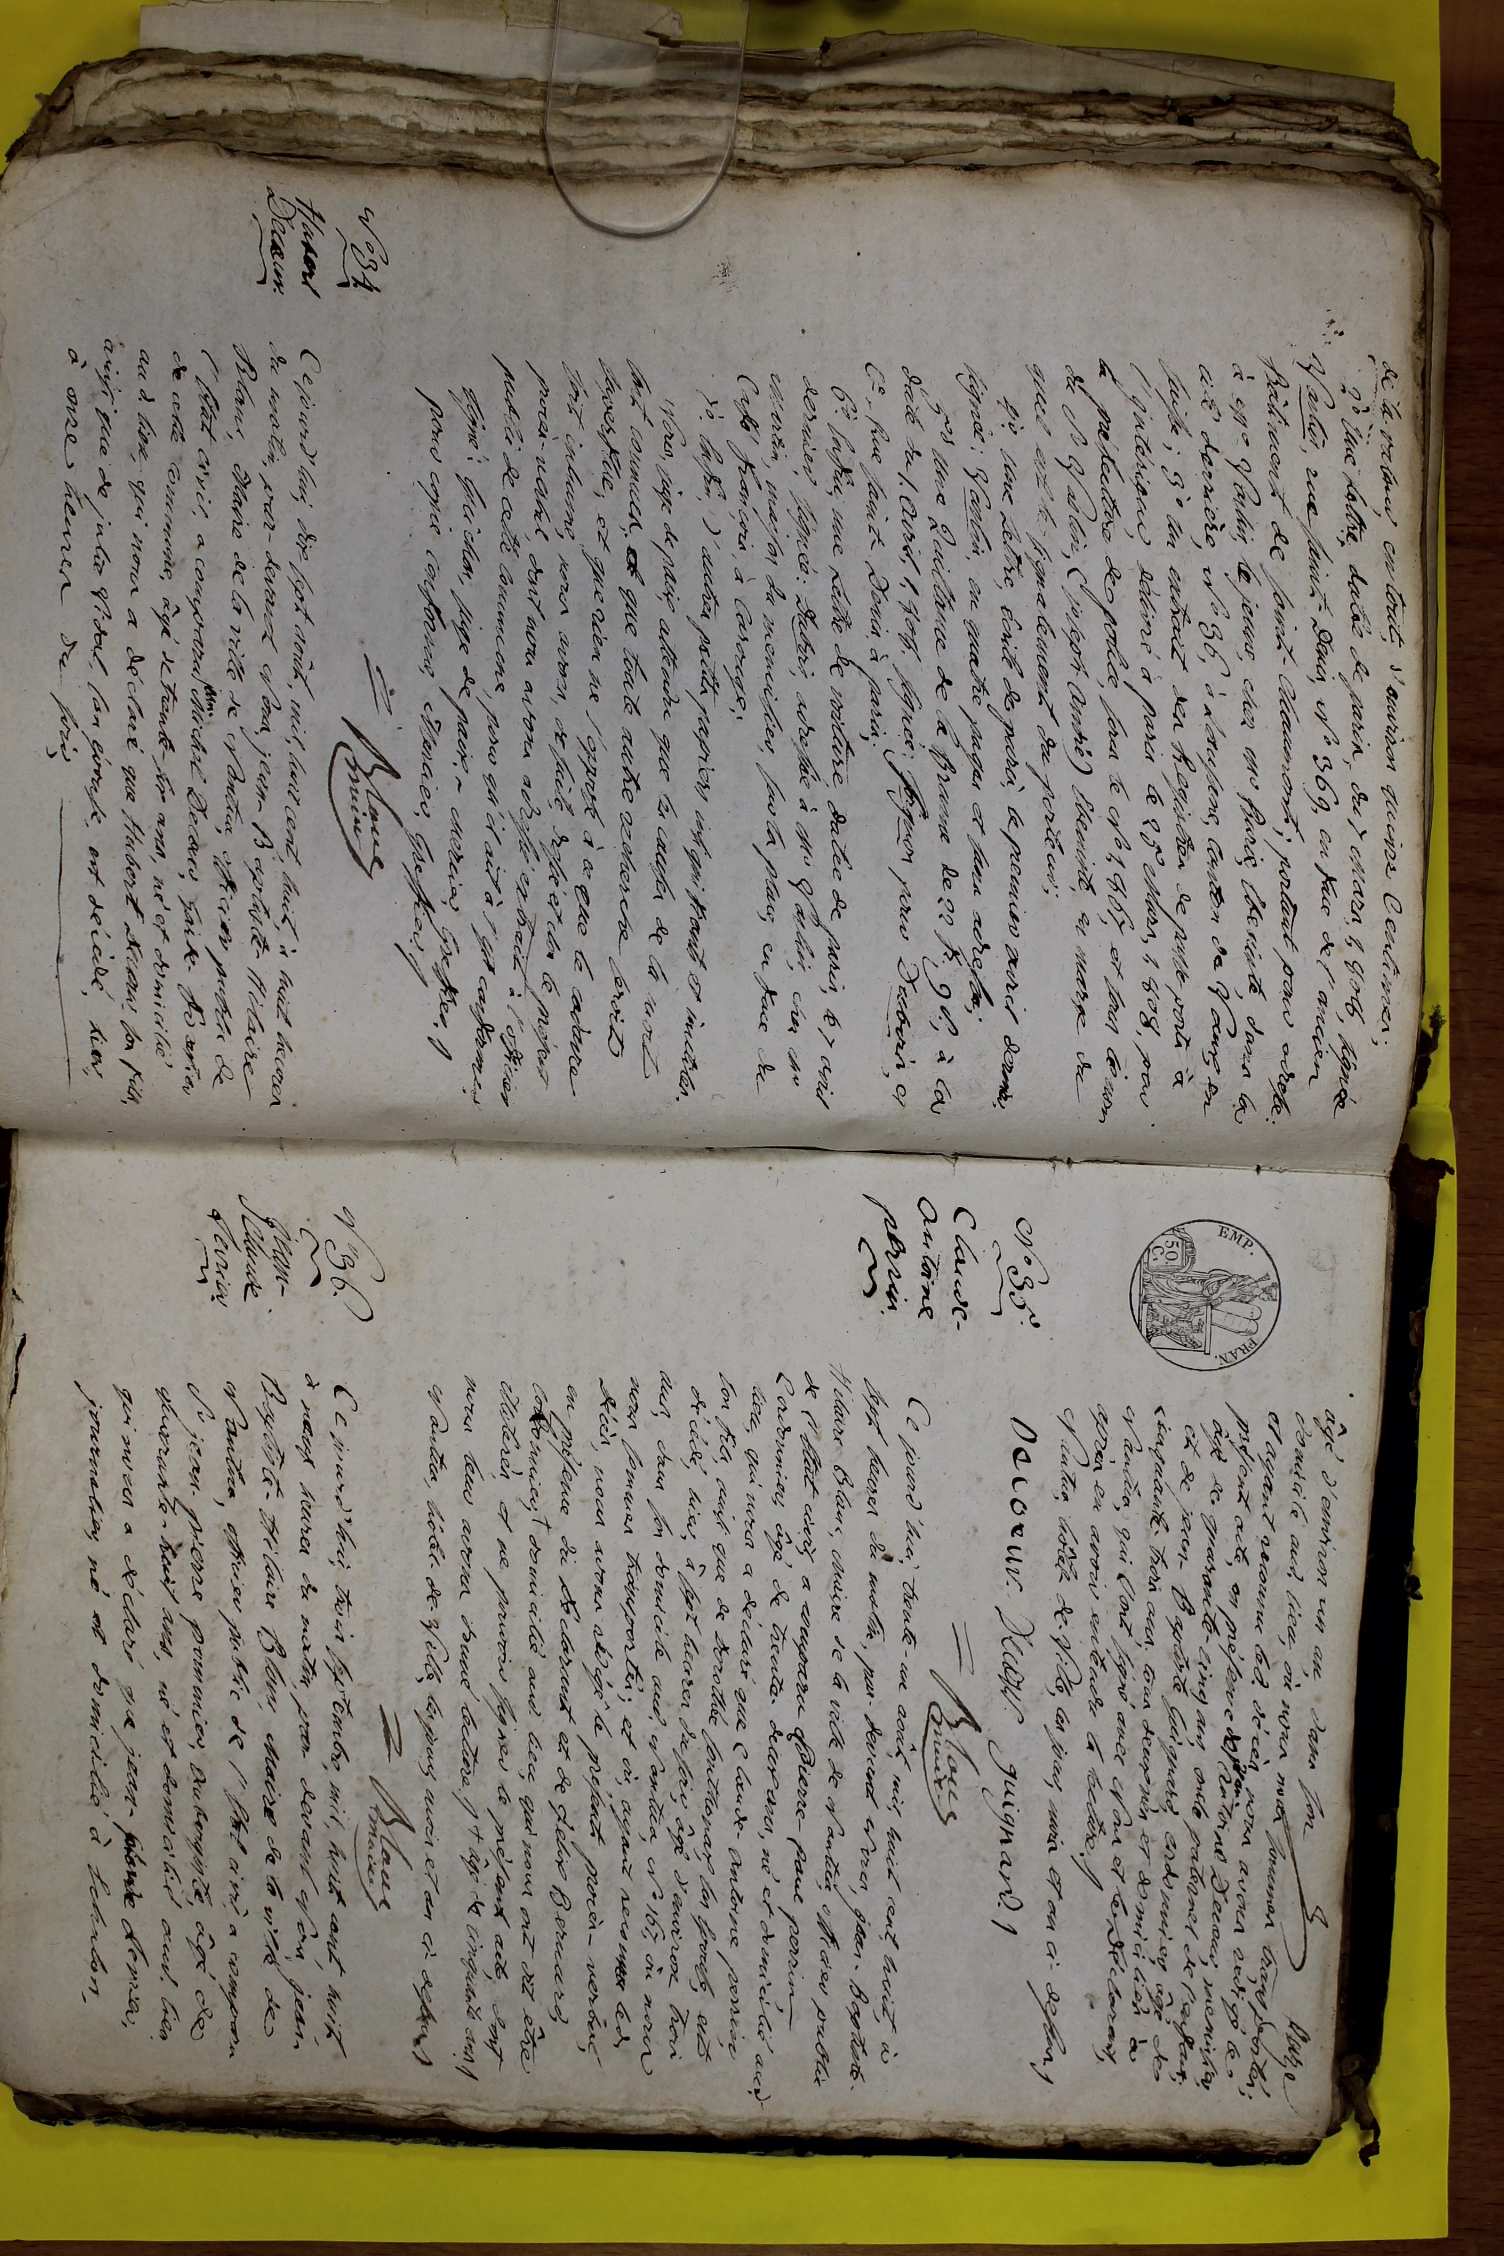 de la valeur, en total, d'environ quinze Centimes;
2.º Une Lettre datée de paris, du 7 mars, 1806, signée
Warlin, rue saint Denis, Nº 369, en face de l'ancien
Bâtiment de saint-Chaumont; portant pour adresse:
à Mr Warlin le jeune, chez Mr
cité derrière, Nº 36, à Lausanne, canton de Vaud, en
suisse; 3.º Un extrait des Registres de passe-ports à
l'intérieur délivré à paris le 25 Mars, 1808, par
la préfecture de police, sous le Nº et sous le nom
du Sr Warlin, (Joseph André) en marge du
quel est le signalement du porteur;
4.º Une Lettre, écrite de paris, le premier avril dernier
signée: Warlin en quatre pages et sans adresse;
5.º Une Quittance de la somme de 22 f. à la
date du 1. Avril, 1808, signée: pour et
Cie, Rue saint Denis, à paris;
6.º Enfin, une Lettre de voiture, datée de paris, le 7 avril
dernier, signée: adressée à Mr Warlin, chez Mr
maison du menuisier sur la place, en face du
Café français, à Carouge;
7.º Enfin, d'autres petits papiers insignifiants et inutiles.
Nous, juge de paix, attendu que les causes de la mort
sont connues, et que toute autre recherche serait
superflue, et que rien ne s'oppose à ce que le cadavre
soit inhumé, nous avons, de suite, dressé et clos le présent
procès-verbal, dont nous avons adressé extrait à l'officier
public de cette commune, pour qu'il ait à s'y conformer;
signé: Guichon, juge de paix, mercier, Greffier./
pour copie conforme, Mercier, Greffier./
Blanc
maire
Nº 34
Hubert
Decoeur.
Ce jourd'hui dix sept août, mil, huit cent huit, à huit heures
du matin, par-devant Nous, jean-Baptiste-Hilaire
Blanc, Maire de la ville de Nantua, officier public de
l'Etat civil, a comparu Michel Decoeur,
de cette commune, âgé de trente six ans, né et domicilié,
aud. lieu, qui nous a déclaré que Hubert Decoeur, son fils,
ainsi que de julie Vidal, son épouse, est décédé, hier,
à onze heures du soir,
page
âgé d'environ un an, dans son
domicile aud. lieu, où nous nous sommes transportés;
et ayant reconnu led. décès, nous avons rédigé le
présent acte, en présence de Antoine Decoeur, menuisier,
âgé de quarante-cinq ans, oncle paternel de l'enfant;
et de jean-Baptiste Guignard, cordonnier, âgé de
cinquante-trois ans, tous deux nés et domiciliés à
Nantua, qui l'ont signé avec Nous et le Déclarant,
après en avoir entendu la lecture;/
Nantua, hôtel de Ville, les jour, mois et an ci-dessus,/
Decoeur. Guignard./
Blanc
maire
EMP. FRAN.
50 C.
Nº 35.
Claude-
Antoine
perrin.
Ce jourd'hui, trente-un août, mil, huit cent, huit, à
sept heures du matin, par-devant Nous, jean-Baptiste-
Hilaire Blanc, Maire de la ville de Nantua, officier public
de l'Etat civil, a comparu Pierre-paul perrin
Cordonnier, âgé de trente-deux ans, né et domicilié aud.
lieu, qui nous a déclaré que Claude-Antoine perrin
son fils, ainsi que de Dorothée son épouse, est
décédé, hier, à sept heures du soir, âgé d'environ trois
ans, dans son domicile aud. Nantua, Nº 167, où nous
nous sommes transportés; et où, ayant reconnu led.
décès, nous avons rédigé le présent procès-verbal,
en présence du Déclarant et de Felix Bernard,
domicilié aud. lieu, qui nous ont dit être
illitérés et ne pouvoir signer le présent acte, dont
nous leur avons donné lecture, / + âgé de cinquante ans /
Nantua, hôtel de Ville, les jour, mois et an ci-dessus,/
Blanc
maire
Nº 36.
Jean-
Claude
Ce jourd'hui, trois septembre, mil, huit cent huit,
à neuf heures du matin, par-devant Nous, jean
Baptiste-Hilaire Blanc, Maire de la ville de
Nantua, officier public de l'Etat civil, a comparu
Sr jean pierre pommier, aubergiste, âgé de
quarante-huit ans, né et domicilié aud. lieu
qui nous a déclaré que jean-Claude
journalier, né et domicilié à Echallon,